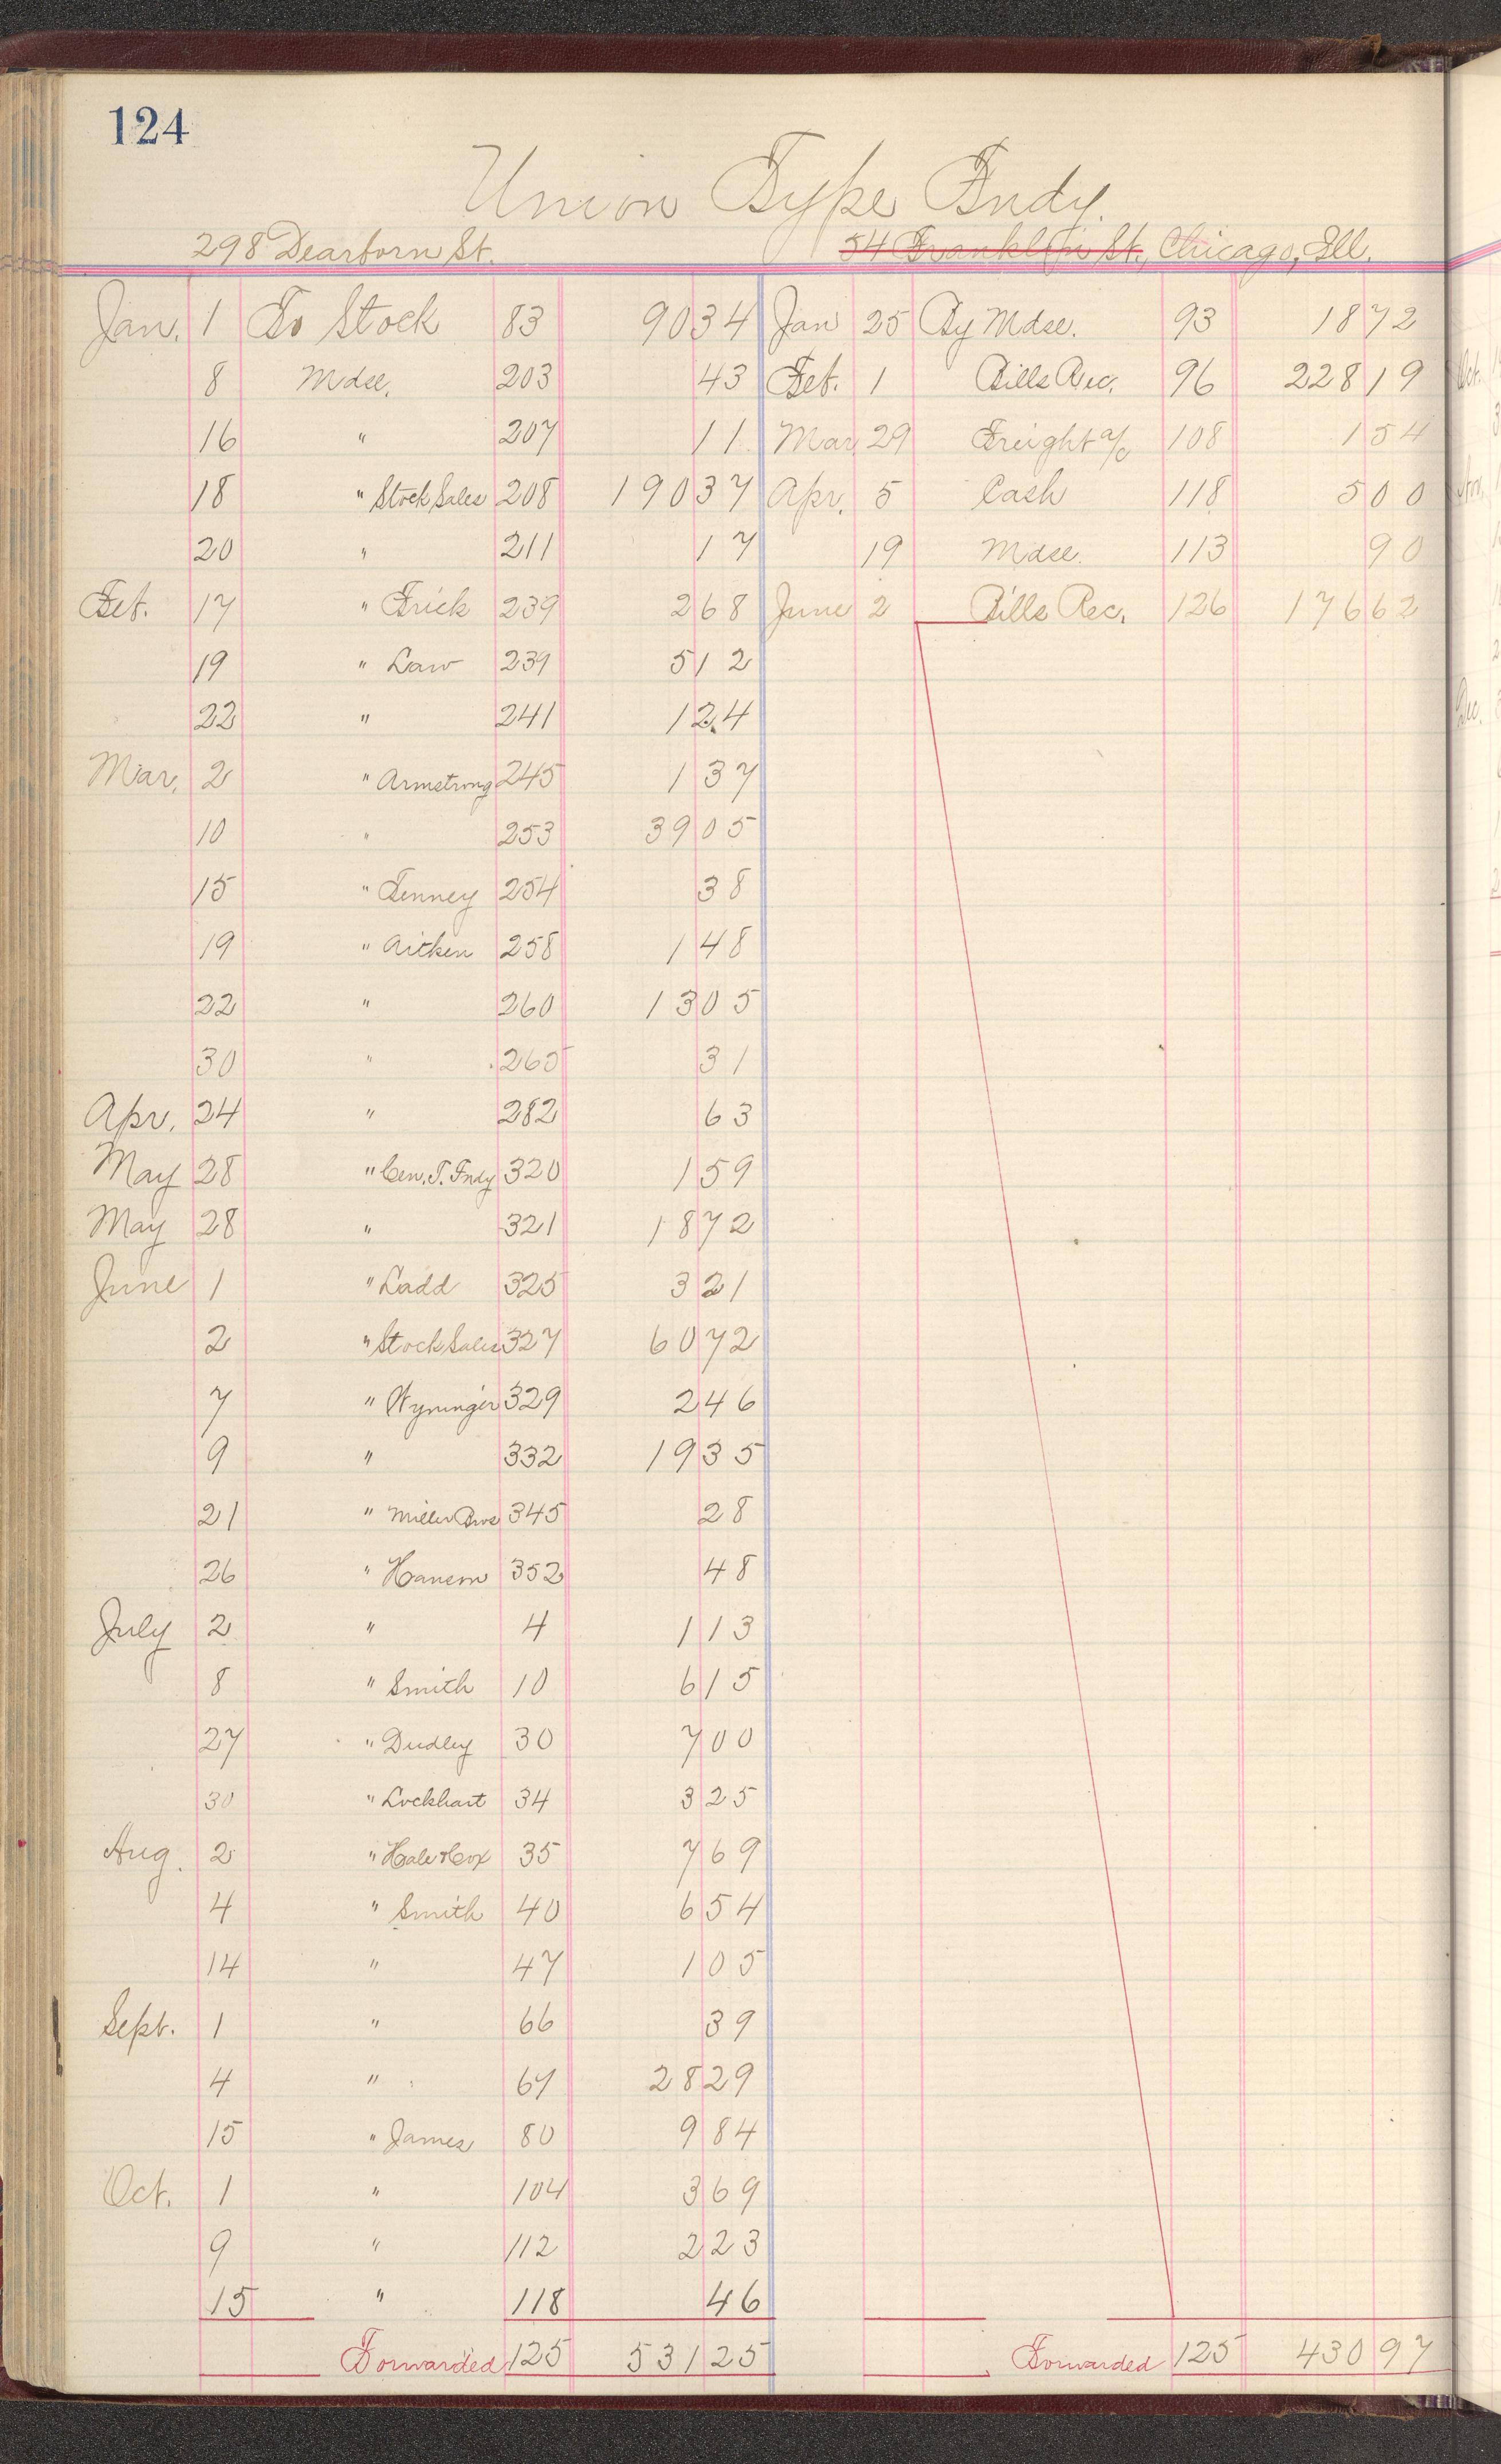 124
Union Type Fndy.
298 Dearborn St. 54 Franklin St., Chicago, Ill.
Jan. 1 To Stock 83 90 34 Jan 25 By Mdse. 93 18 72
8 Mdse. 203 43 Feb. 1 Bills Rec. 96 228 19
16 " 207 11 Mar 29 Freight a/c 108 1 54
18 " Stock Sales 208 190 37 Apr. 5 Cash 118 5 00
20 " 211 17 19 Mdse. 113 90
Feb. 17 " Frick 239 2 68 June 2 Bills Rec. 126 176 62
19 " Law 239 5 12
22 " 241 1 24
Mar. 2 " Armstrong 245 1 37
10 " 253 39 05
15 " Tenney 254 38
19 " Aitken 258 1 48
22 " 260 13 05
30 " 265 31
Apr. 24 " 282 63
May 28 " Cen. T. Fndy 320 1 59
May 28 " 321 18 72
June 1 " Ladd 325 3 21
2 " Stock Sales 327 60 72
7 " Wyninger 329 2 46
9 " 332 19 35
21 " Miller Bros 345 28
26 " 352 48
July 2 " 4 1 13
8 " Smith 10 6 15
27 " Dudley 30 7 00
30 " Lockhart 34 3 25
Aug. 2 " Hale & Cox 35 7 69
4 " Smith 40 6 54
14 " 47 1 05
Sept. 1 " 66 39
4 " 67 28 29
15 " James 80 9 84
Oct. 1 " 104 3 69
9 " 112 2 23
15 " 118 46
Forwarded 125 531 25 Forwarded 125 430 97